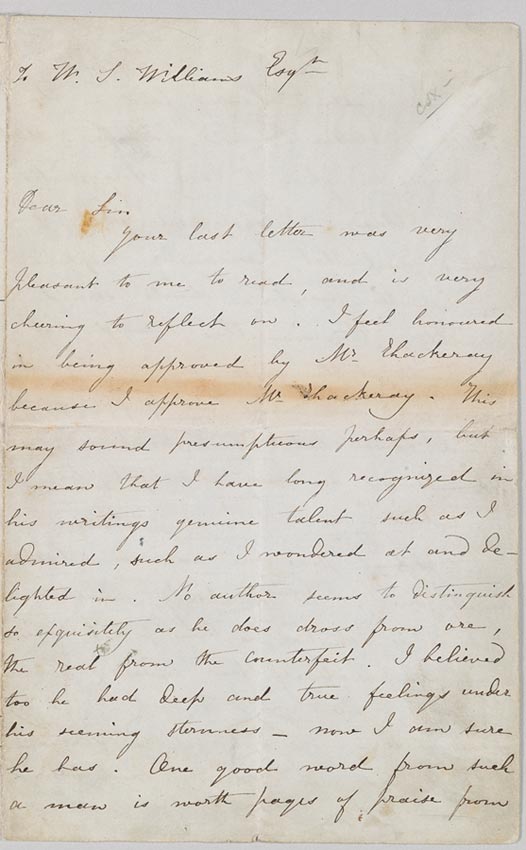 To W. S. Williams Esqre
Dear Sir
Your last letter was very
pleasant to me to read, and is very
cheering to reflect on. I feel honoured
in being approved by Mr Thackeray
because I approve Mr Thackeray. This
may sound presumptuous perhaps, but
I mean that I have long recognized in
his writings genuine talent such as I
admired, such as I wondered at and de-
lighted in. No author seems to distinguish
so exquisitely as he does dross from ore,
the real from the counterfeit. I believed
too he had deep and true feelings under
his seeming sternness – now I am sure
he has. One good word from such
a man is worth pages of praise from